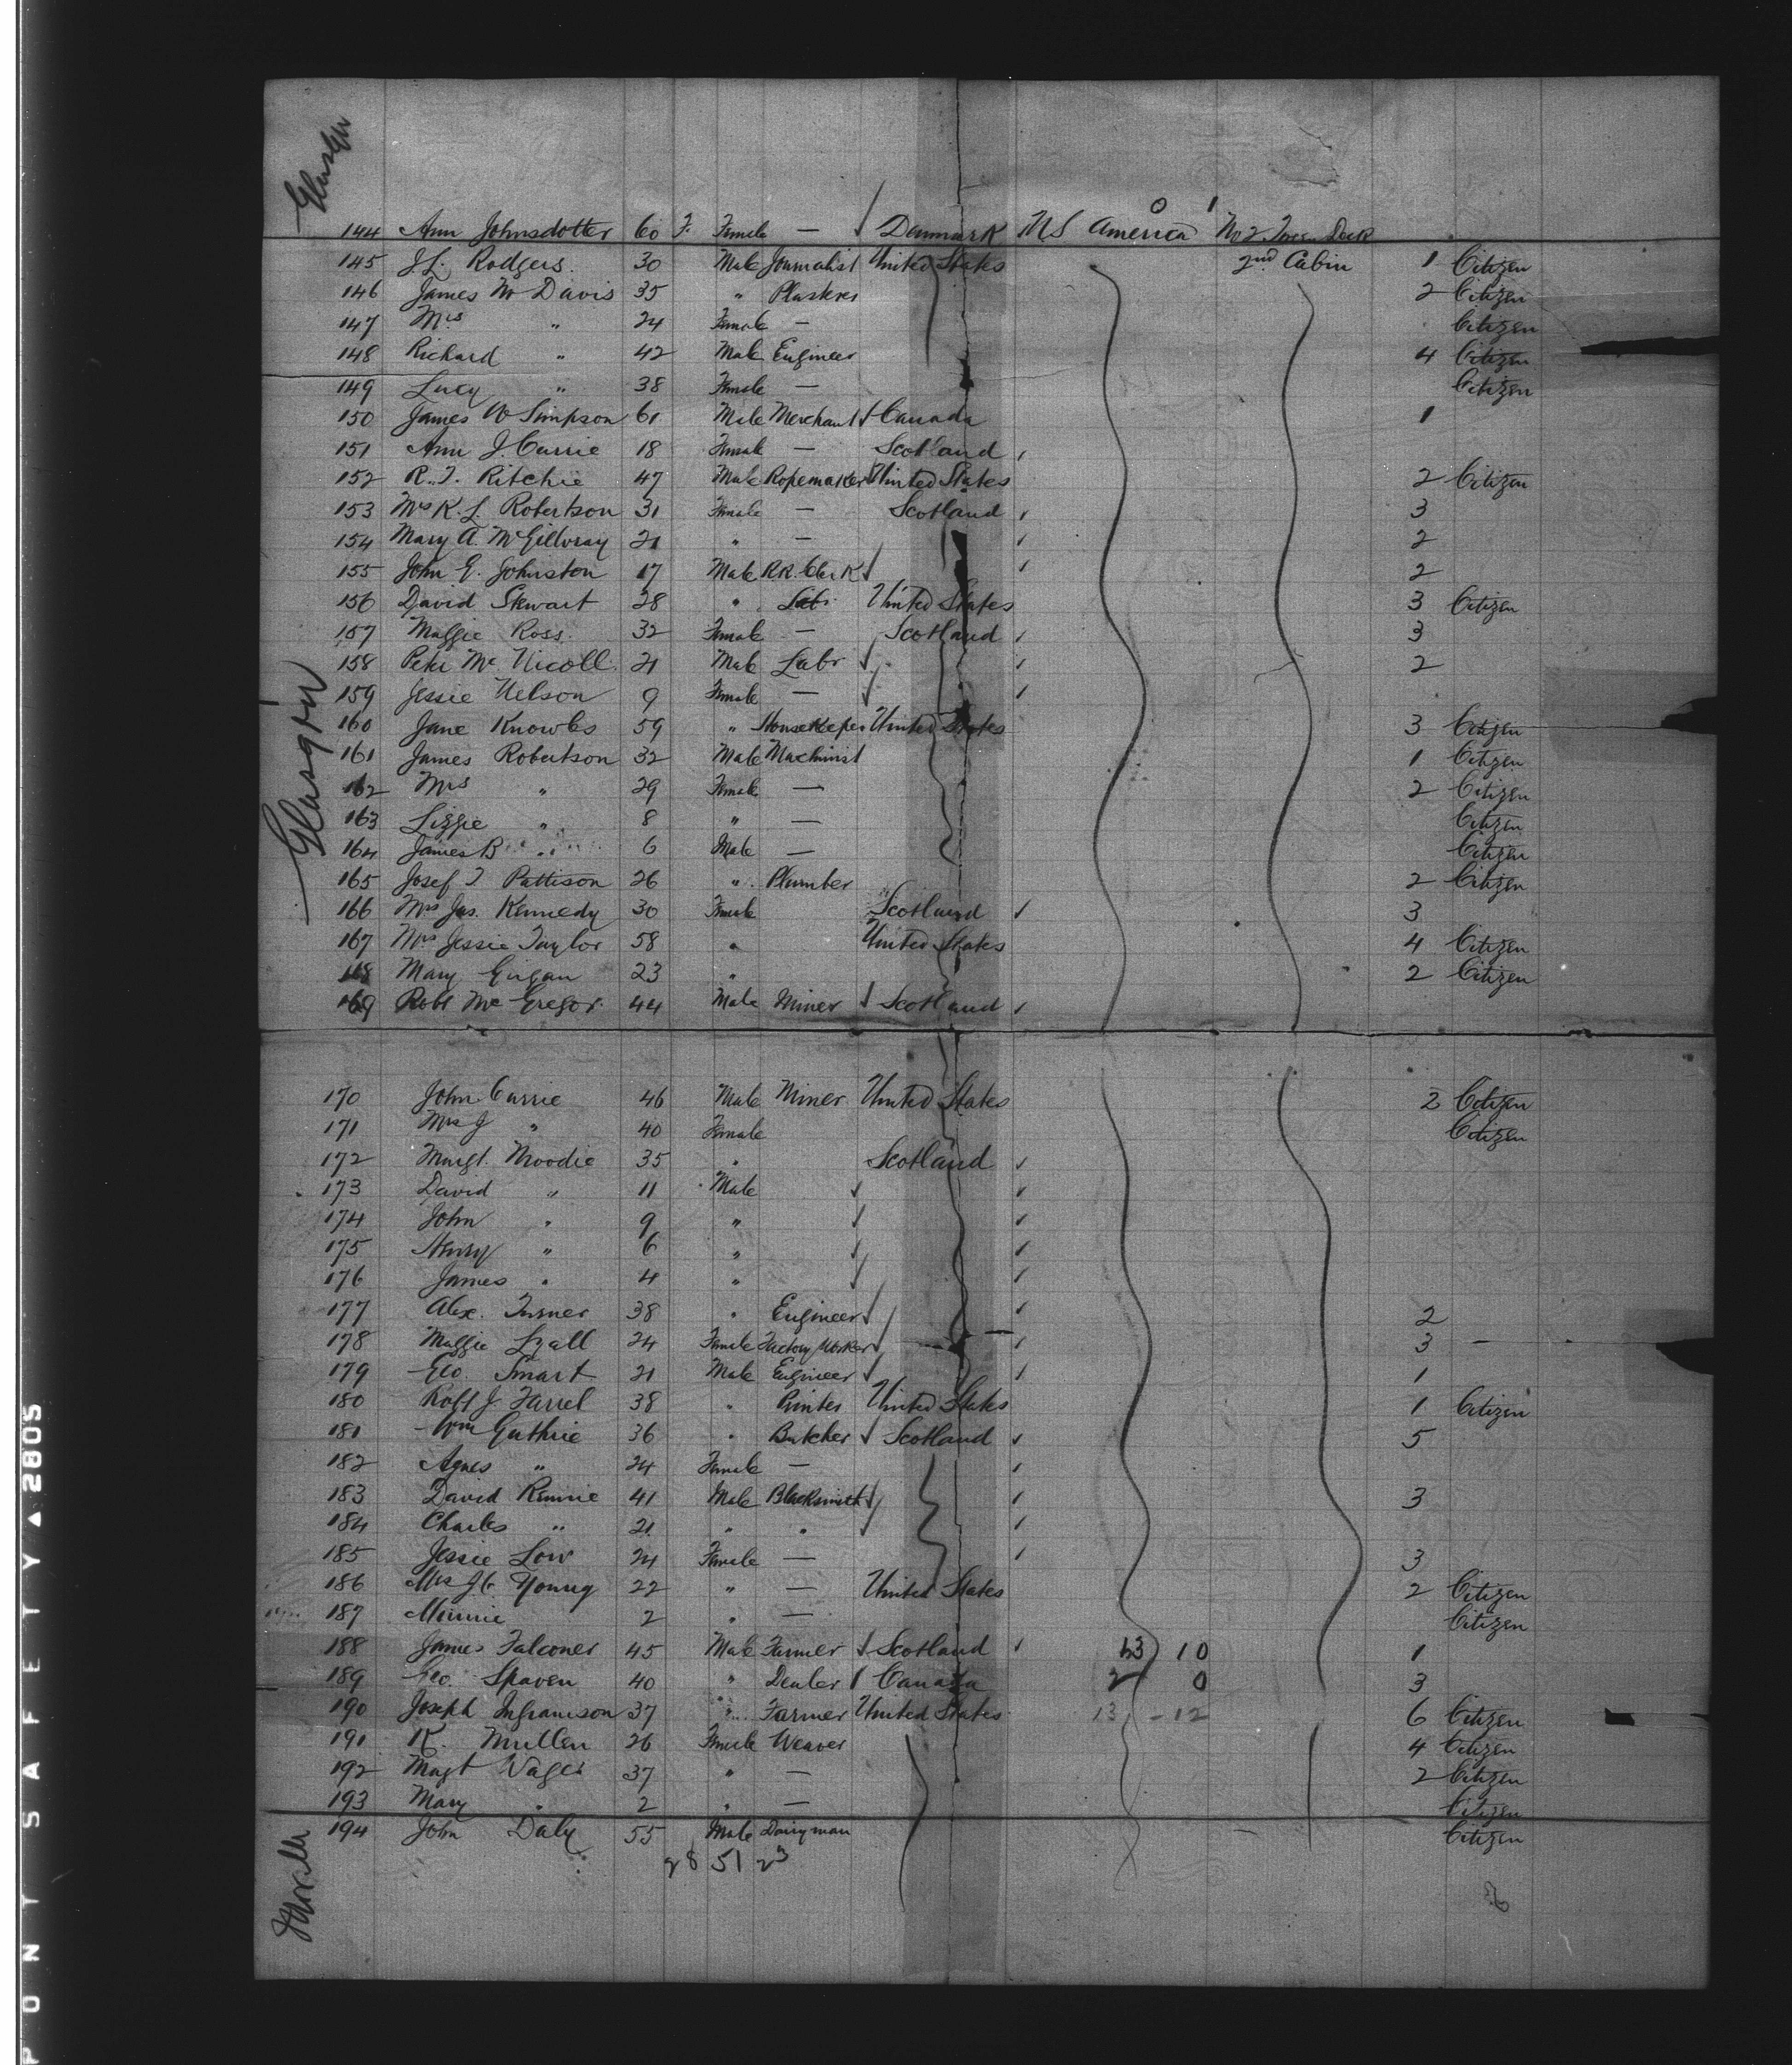 Glasgow
144 Ann Johnsdotter 60 F. Female — Denmark US America No 2 Tween Deck
145 J. L. Rodgers 30 Male Journalist United States 2nd Cabin 1 Citizen
146 James M Davis 35 " Plasterer 2 Citizen
147 Mrs " 24 Female — Citizen
148 Richard " 42 Male Engineer 4 Citizen
149 Lucy " 38 Female — Citizen
150 James W Simpson 61 Male Merchant Canada 1
151 Ann J. Currie 18 Female — Scotland
152 R. T. Ritchie 47 Male Ropemaker United States 2 Citizen
153 Mrs K. L. Robertson 31 Female — Scotland 3
154 Mary A. McGillvray 21 " — 2
155 John G. Johnston 17 Male RR. Clerk 2
156 David Stewart 28 " Labr United States 3 Citizen
157 Maggie Ross 32 Female — Scotland 3
158 Peter McNicoll 21 Male Labr 2
159 Jessie Nelson 9 Female —
160 Jane Knowles 59 " Housekeeper United States 3 Citizen
Glasgow
161 James Robertson 32 Male Machinist 1 Citizen
162 Mrs " 29 Female — 2 Citizen
163 Lizzie " 8 " — Citizen
164 James B " 6 Male — Citizen
165 Josef T Pattison 26 " Plumber 2 Citizen
166 Mrs Jas. Kennedy 30 Female Scotland 3
167 Mrs Jessie Taylor 58 " United States 4 Citizen
168 Mary Girgan 23 " 2 Citizen
169 Robt McGregor 44 Male Miner Scotland
170 John Currie 46 Male Miner United States 2 Citizen
171 Mrs J " 40 Female Citizen
172 Margt. Moodie 35 " Scotland
173 David " 11 Male
174 John " 9 "
175 Henry " 6 "
176 James " 4 "
177 Alex. Turner 38 " Engineer 2
178 Maggie Lyall 24 Female Factory Worker 3 —
179 Geo. Smart 21 Male Engineer 1
180 Robt J. Farrel 38 " Printer United States 1 Citizen
181 Wm Guthrie 36 " Butcher Scotland 5
182 Agnes " 24 Female —
183 David Rennie 41 Male Blacksmith 3
184 Charles " 21 " "
185 Jessie Low 24 Female — 3
186 Mrs J. C. Young 22 " — United States 2 Citizen
187 Minnie 2 " — Citizen
188 James Falconer 45 Male Farmer Scotland 13 10 1
189 Geo. Spaven 40 " Dealer Canada 2 0 3
190 Joseph Ingramson 37 " Farmer United States 13 - 12 6 Citizen
191 K. Mullen 26 Female Weaver 4 Citizen
192 Magt 37 " — 2 Citizen
193 Mary " 2 " — Citizen
194 John Daly 55 Male Dairyman Citizen
28 51 23
Moville
PONT SAFETY ▲ 2805